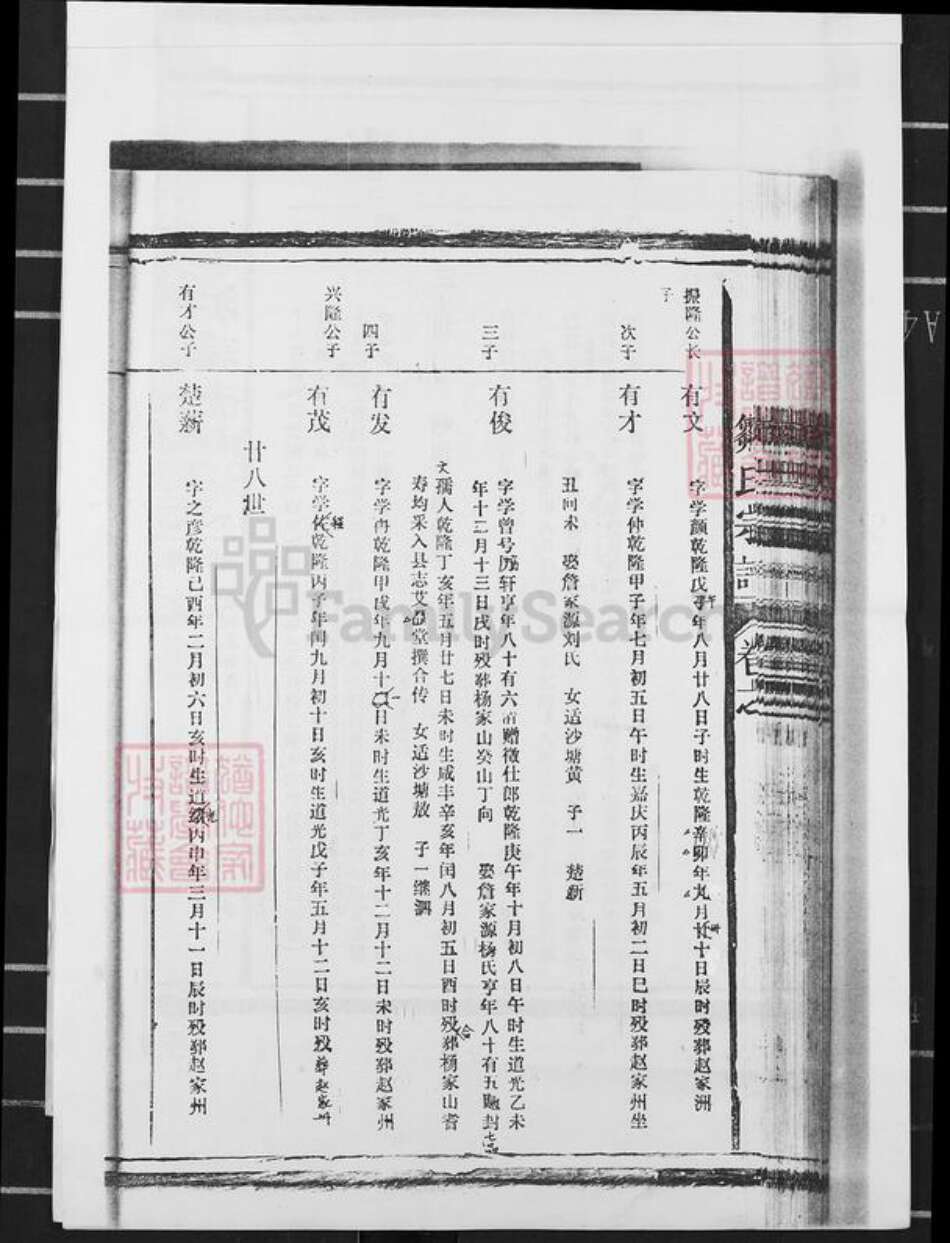 邹氏宗谱 卷之
振隆公长子
有文
字学颜乾隆戊子年八月廿八日子时生乾隆辛卯年九月廿十日辰时殁葬赵家洲
午
次子
有才
字学仲乾隆甲子年七月初五日午时生嘉庆丙辰年五月初二日巳时殁葬赵家州坐
丑向未 娶詹家源刘氏 女适沙塘黄 子一 楚新
三子
有俊
字学曾号历轩享年八十有六 赠徵仕郎乾隆庚午年十月初八日午时生道光乙未
年十二月十三日戌时殁葬杨家山癸山丁向 娶詹家源杨氏享年八十有五 封七品
孺人乾隆丁亥年五月廿七日未时生咸丰辛亥年闰八月初五日酉时殁葬杨家山耆
合
寿均采入县志艾 堂撰合传 女适沙塘敖 子一继
四子
有发
字学冉乾隆甲戌年九月十 日未时生道光丁亥年十二月十二日未时殁葬赵家州
兴隆公子
有茂
字学 乾隆丙子年闰九月初十日亥时生道光戊子年五月十二日亥时殁葬赵家州
廿八世
有才公子
楚新
字之彦乾隆己酉年二月初六日亥时生道 丙申年三月十一日辰时殁葬赵家州
光
FamilySearch
A4